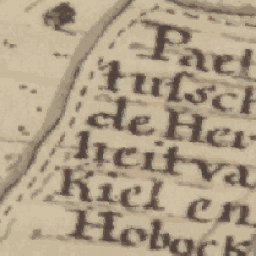 Pael
tuſsch
de Hei
heit va
Kiel en
Hobock